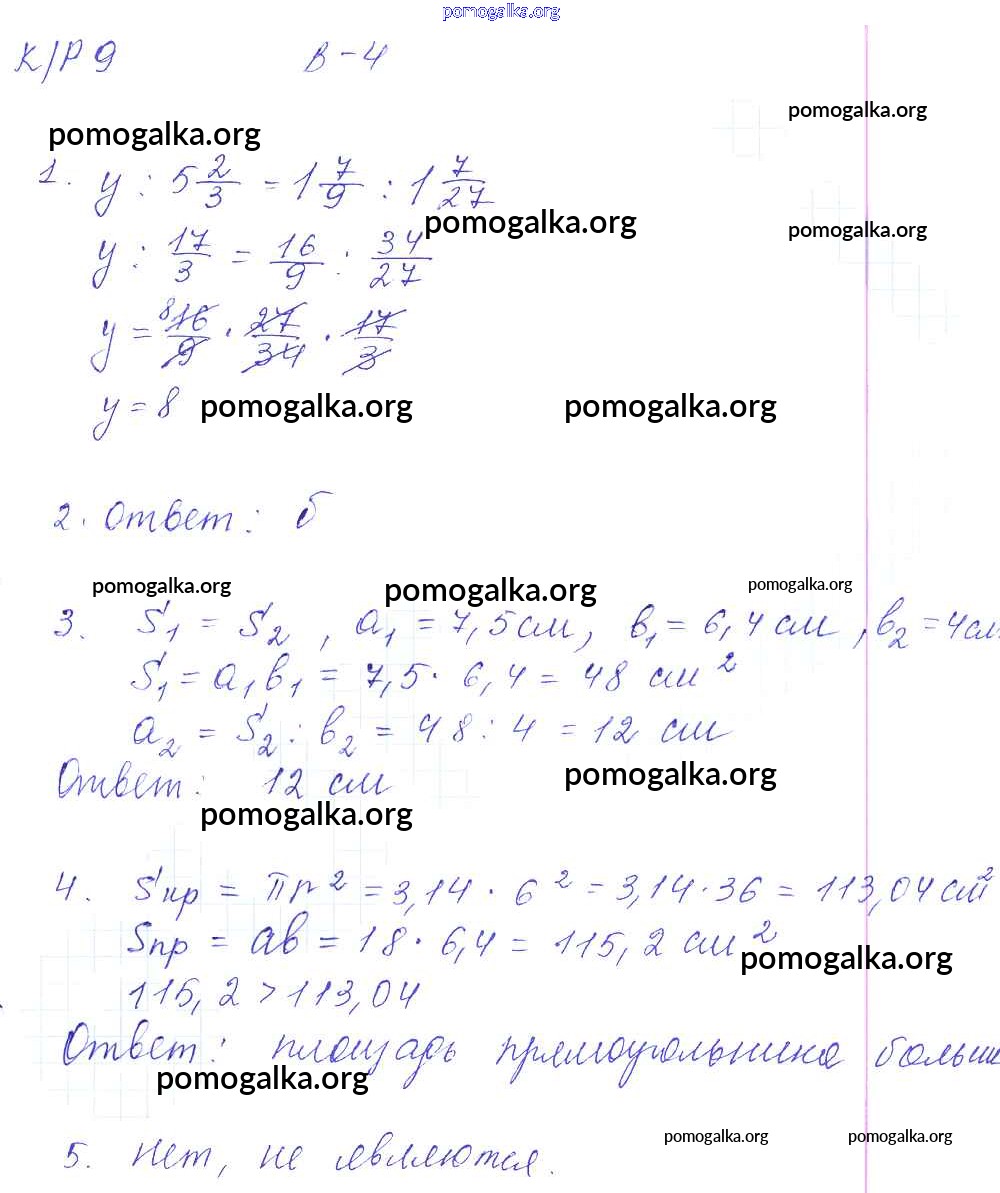 pomogalka.org
К/Р 9 В-4
pomogalka.org
pomogalka.org
1. y : 5 2/3 = 1 7/9 : 1 7/27
pomogalka.org pomogalka.org
y : 17/3 = 16/9 : 34/27
y = 8 16/9 · 27/34 · 17/3
y = 8 pomogalka.org pomogalka.org
2. Ответ: б
pomogalka.org pomogalka.org pomogalka.org
3. S₁ = S₂, a₁ = 7,5 см, в₁ = 6,4 см, в₂ = 4 см
S₁ = a₁в₁ = 7,5 · 6,4 = 48 см²
a₂ = S₂ : в₂ = 48 : 4 = 12 см
Ответ: 12 см pomogalka.org
pomogalka.org
4. Sкр = πr² = 3,14 · 6² = 3,14 · 36 = 113,04 см²
Sпр = ав = 18 · 6,4 = 115,2 см²
pomogalka.org
115,2 > 113,04
Ответ: площадь прямоугольника больше
pomogalka.org
5. Нет, не являются.
pomogalka.org pomogalka.org